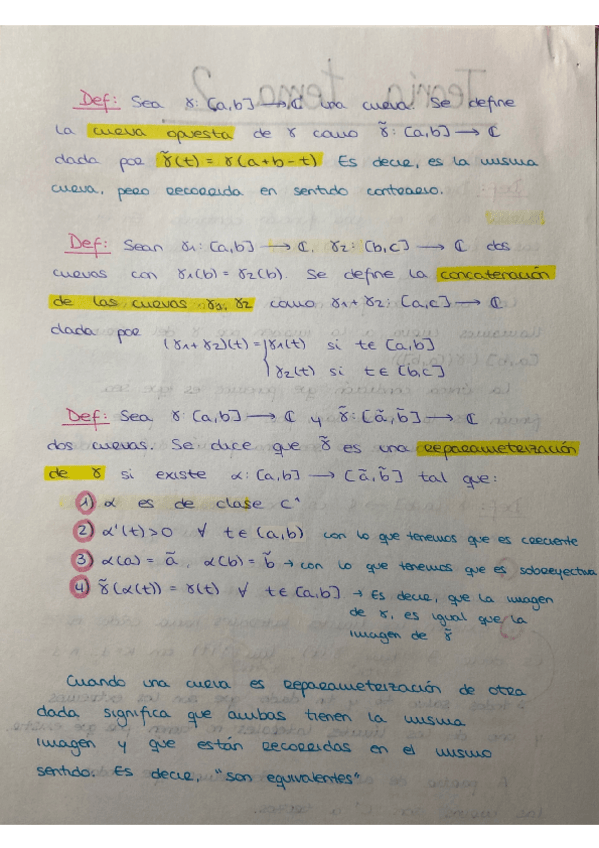 Def: Sea γ: [a,b] → ℂ una curva. Se define
la curva opuesta de γ como γ̃: [a,b] → ℂ
dada por γ̃(t) = γ(a+b-t) Es decir, es la misma
curva, pero recorrida en sentido contrario.
Def: Sean γ1: [a,b] → ℂ, γ2: [b,c] → ℂ dos
curvas con γ1(b) = γ2(b). Se define la concatenación
de las curvas γ1, γ2 como γ1+γ2: [a,c] → ℂ
dada por
(γ1+γ2)(t) = { γ1(t) si t∈[a,b]
γ2(t) si t∈[b,c]
Def: Sea γ: [a,b] → ℂ y γ̃: [ã,b̃] → ℂ
dos curvas. Se dice que γ̃ es una reparametrización
de γ si existe α: [a,b] → [ã,b̃] tal que:
1) α es de clase C¹
2) α'(t)>0 ∀ t∈(a,b) con lo que tenemos que es creciente
3) α(a) = ã, α(b) = b̃ → con lo que tenemos que es sobreyectiva
4) γ̃(α(t)) = γ(t) ∀ t∈[a,b] → Es decir, que la imagen
de γ, es igual que la
imagen de γ̃
Cuando una curva es reparametrización de otra
dada, significa que ambas tienen la misma
imagen y que están recorridas en el mismo
sentido. Es decir, "son equivalentes"